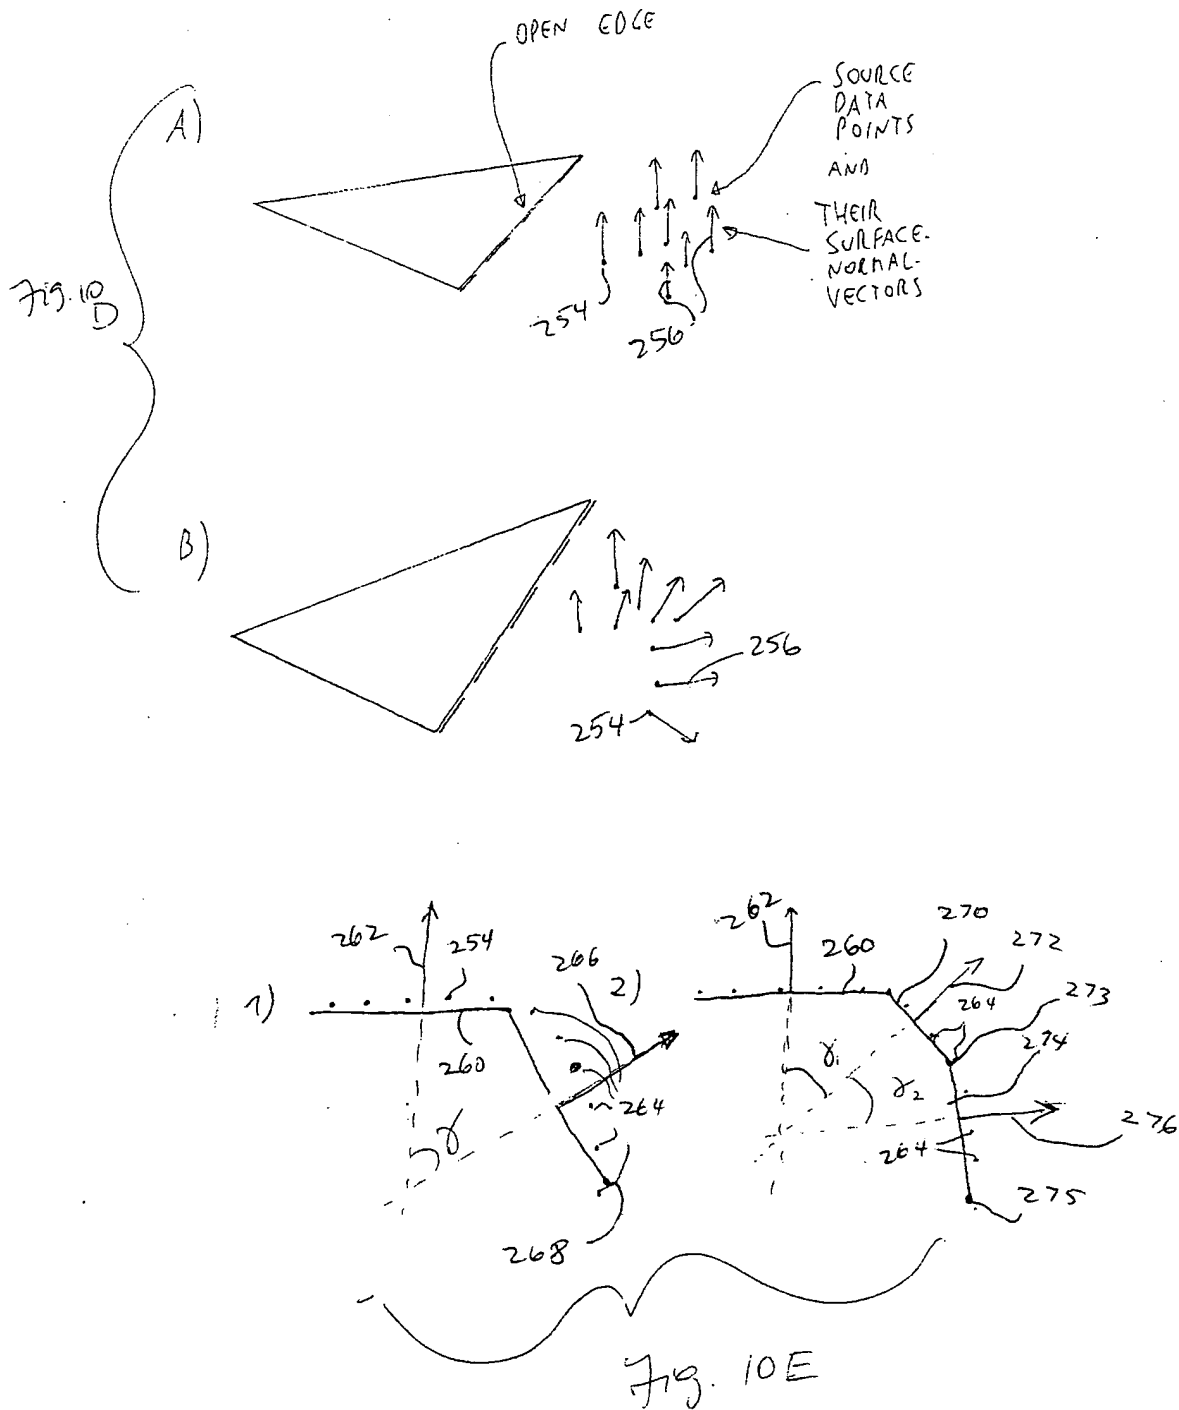 OPEN EDGE
A)
SOURCE
DATA
POINTS
AND
THEIR
SURFACE-
NORMAL-
VECTORS
Fig. 10
D
254
256
B)
256
254
1)
262
254
266
260
264
γ
268
2)
262
260
270
272
264
273
274
γ1
γ2
276
264
275
Fig. 10E